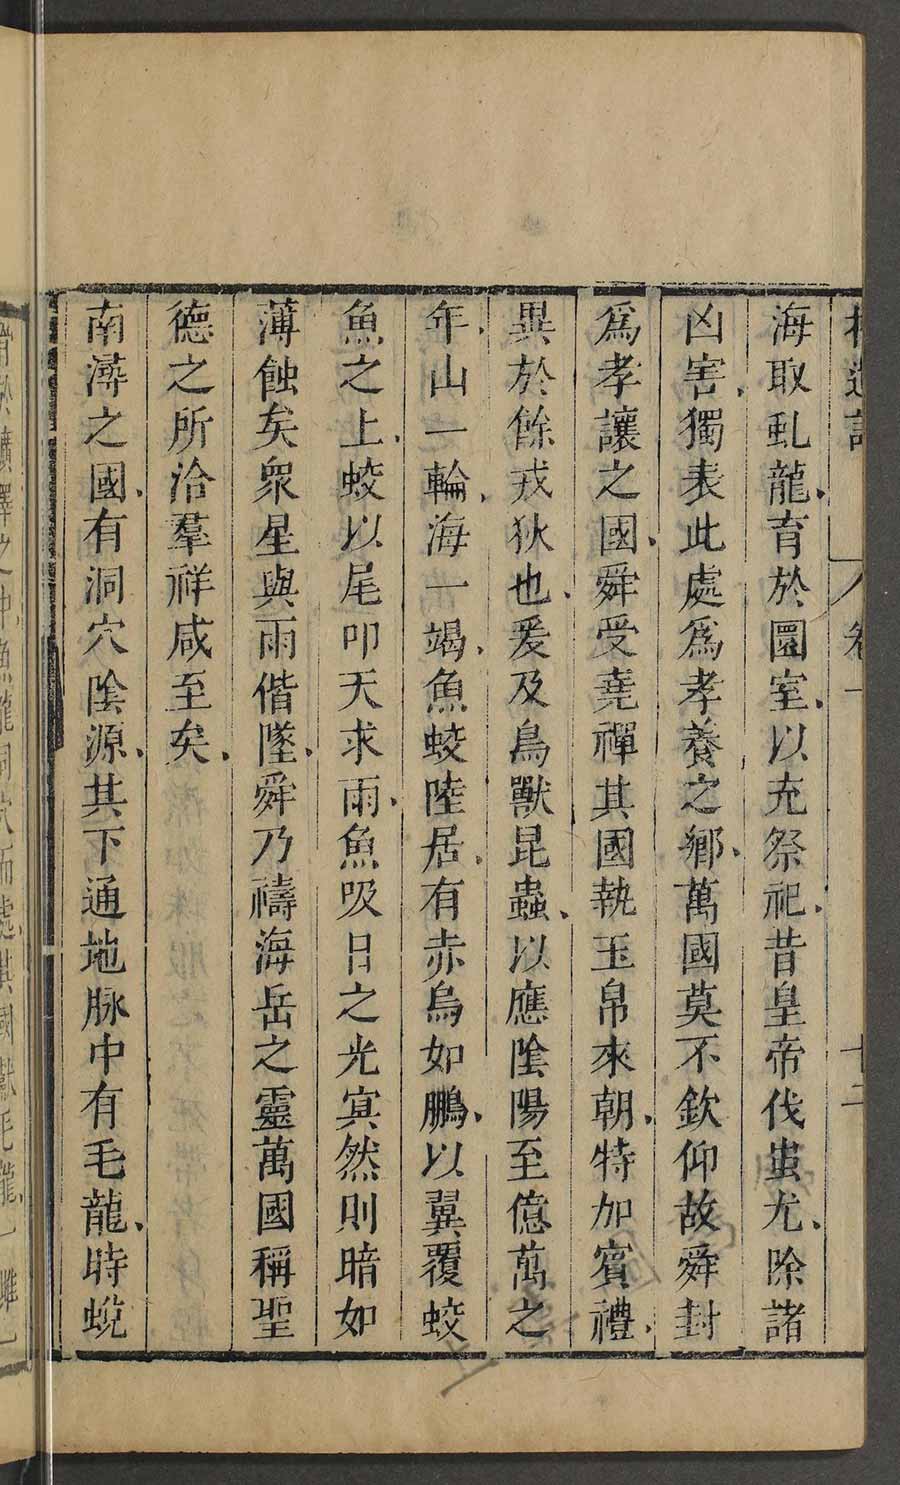 海取虬龍育於圜室以充祭祀昔皇帝伐蚩尤除諸
凶害獨表此處爲孝養之鄉萬國莫不欽仰故舜封
爲孝讓之國舜受堯禪其國執玉帛來朝特加賓禮
異於餘戎狄也爰及鳥獸昆蟲以應隂陽至億萬之
年山一輪海一竭魚蛟陸居有赤烏如鵬以翼覆蛟
魚之上蛟以尾叩天求雨魚吸日之光冥然則暗如
薄蝕矣衆星與雨偕墜舜乃禱海岳之靈萬國稱聖
德之所洽羣祥咸至矣
南潯之國有洞穴隂源其下通地脉中有毛龍時蛻